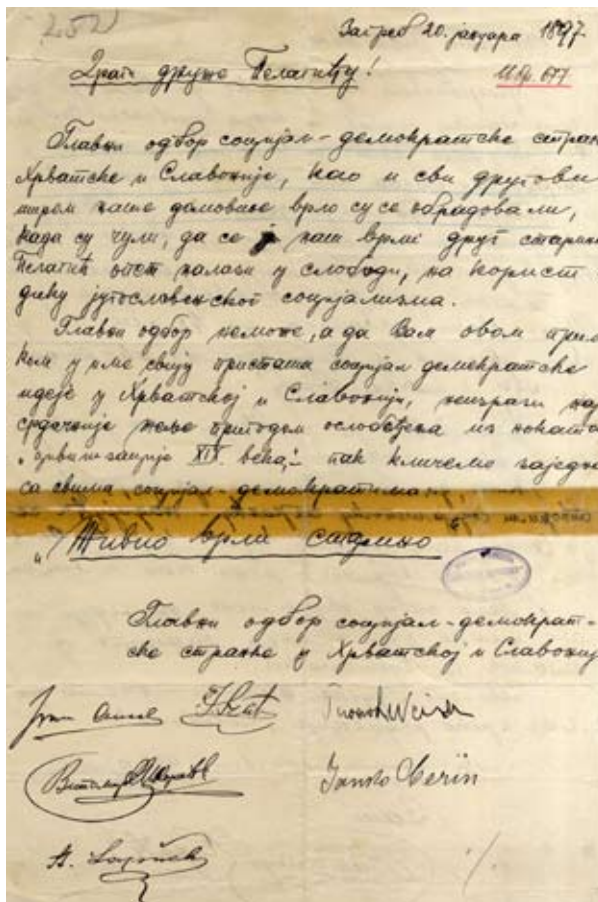 252
Загреб 20. јануара 1897.
Драги друже Пелагићу!
Главни одбор социјал-демократске стран
Хрватске и Славоније, као и сви другови
широм наше домовине врло су се обрадовали,
када су чули, да се наш врли друг старин
Пелагић опет налази у слободи, на корист
дику југославенског социјализма.
Главни одбор неможе, а да Вам овом прил
ком у име свију присташа социјал демократске
идеје у Хрватској и Славонији, неизрази нај
срдачније жеље приликом ослобођења из
XIX. века," – пак кличемо заједно
са свима социјал-демократима:
„Живио врли старино
Главни одбор социјал-демократ-
ске странке у Хрватској и Славониј
Ivan Ancel
Janko Cerin